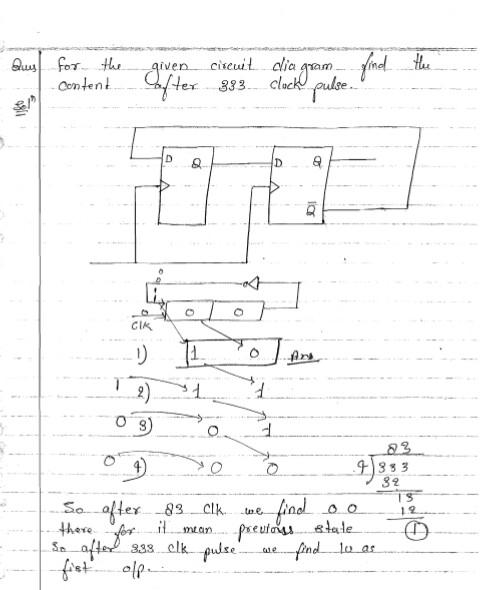 Ques for the given circuit diagram find the
content after 333 clock pulse.
Solⁿ
D Q D Q
Q̅
0
0
1
0 0 0
Clk
1) 1 0 Ans
1 2) 1 1
0 3) 0 1
0 4) 0 0
83
4)333
32
13
12
1
So after 83 clk we find 00
there for it mean previous state
So after 333 clk pulse we find 10 as
fist o/p.